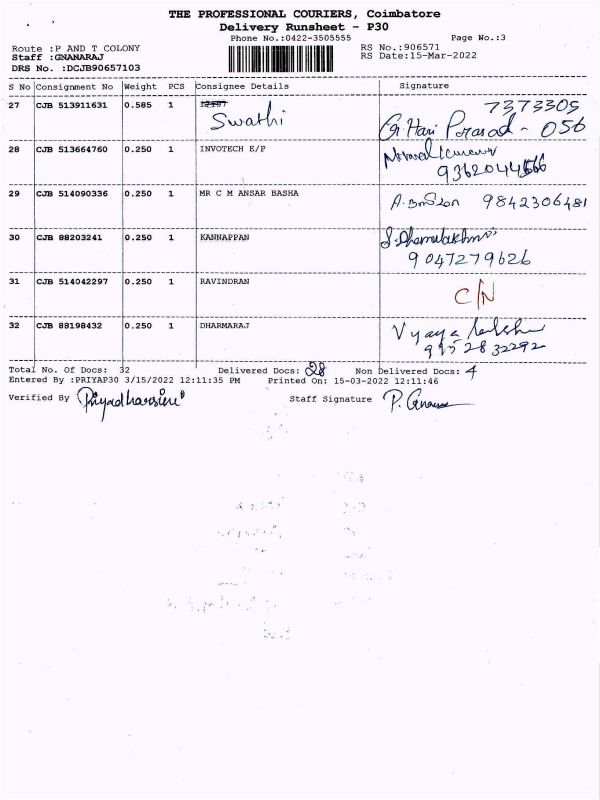 THE PROFESSIONAL COURIERS, Coimbatore
Delivery Runsheet - P30
Phone No.:0422-3505555 Page No.:3
Route :P AND T COLONY RS No.:906571
Staff :GNANARAJ RS Date:15-Mar-2022
DRS No. :DCJB90657103
S No Consignment No Weight PCS Consignee Details Signature
27 CJB 513911631 0.585 1 7373305
Swathi G. Hari Prasad - 056
28 CJB 513664760 0.250 1 INVOTECH E/P
9362044666
29 CJB 514090336 0.250 1 MR C M ANSAR BASHA
9842306481
30 CJB 88203241 0.250 1 KANNAPPAN
9047279626
31 CJB 514042297 0.250 1 RAVINDRAN
C/N
32 CJB 88198432 0.250 1 DHARMARAJ
9952832292
Total No. Of Docs: 32 Delivered Docs: 28 Non Delivered Docs: 4
Entered By :PRIYAP30 3/15/2022 12:11:35 PM Printed On: 15-03-2022 12:11:46
Verified By Priyadharsini Staff Signature